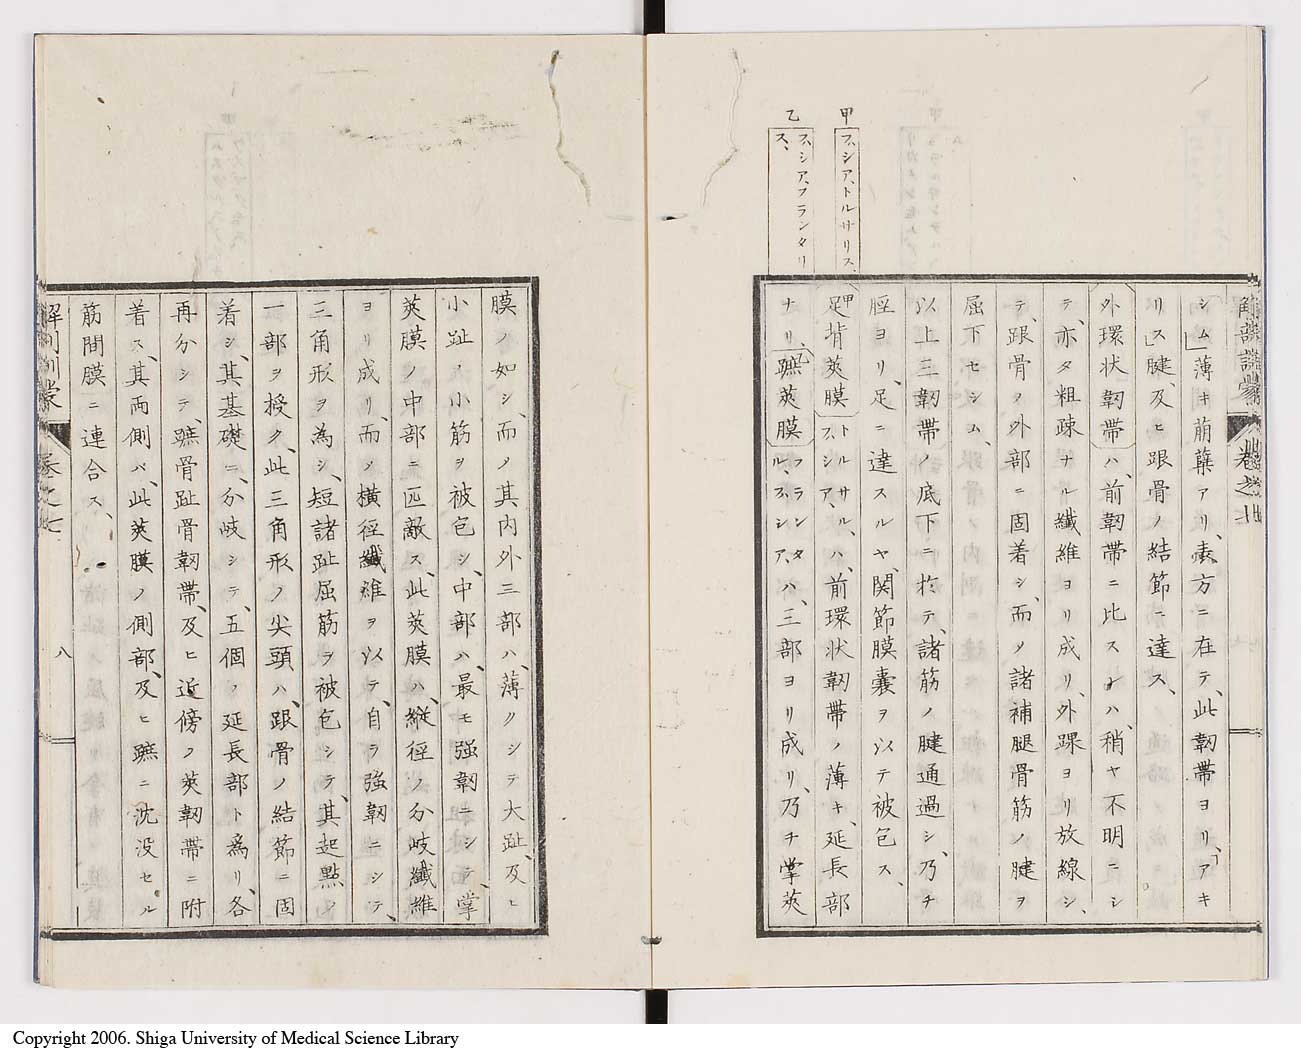 甲
フ、シア、トルサリス、
乙
フ、シア、フランタリ
ス、
シム」薄キ萠蘖アリ、裏方ニ在テ、此韌帯ヨリ、「アキ
リス」腱、及ヒ跟骨ノ結節ニ達ス、
外環状韌帯ハ、前韌帯ニ比スレハ、稍ヤ不明ニシ
テ、亦タ粗疎ナル纖維ヨリ成リ、外踝ヨリ放線シ、
テ、跟骨ノ外部ニ固着シ、而メ諸補腿骨筋ノ腱ヲ
屈下セシム、
以上三韌帯ノ底下ニ於テ、諸筋ノ腱通過シ、乃チ
脛ヨリ、足ニ達スルヤ、関節膜嚢ヲ以テ被包ス、
甲足背莢膜トルサル、フ、シア、ハ、前環状韌帯ノ薄キ、延長部
ナリ、乙蹠莢膜フランタルフ、シア、ハ、三部ヨリ成リ、乃チ掌莢
膜ノ如シ、而メ其内外三部ハ、薄クシテ大趾、及ヒ
小趾ノ小筋ヲ被包シ、中部ハ、最モ強韌ニシテ、掌
莢膜ノ中部ニ匹敵ス、此莢膜ハ、縦径ノ分岐纖維
ヨリ成リ、而メ横径纖維ヲ以テ、自ラ強韌ニシテ、
三角形ヲ為シ、短諸趾屈筋ヲ被包シテ、其起點ノ
一部ヲ授ク、此三角形ノ尖頭ハ、跟骨ノ結節ニ固
着シ、其基礎ニ、分岐シテ、五個ノ延長部ト為リ、各
再分シテ、蹠骨趾骨韌帯、及ヒ近傍ノ莢韌帯ニ附
着ス、其両側バ、此莢膜ノ側部、及ヒ蹠ニ沈没セル
筋間膜ニ連合ス、
解剖訓蒙
巻之七
八
Copyright 2006. Shiga University of Medical Science Library